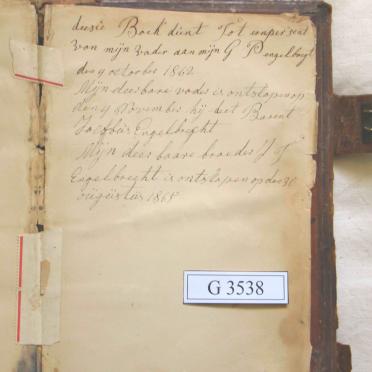 deesie Boek dient Tot een persent
van mijn vader aan mijn G P Engelbregt
den 9 october 1862
Mijn deesbare vader is ontslapen op
den 4 November hij heet Barent
Jacobus Engelbrecht
Mijn deesbaare broeder J J
Engelbrecht is ontslapen op de 30
augustus 1865
G 3538